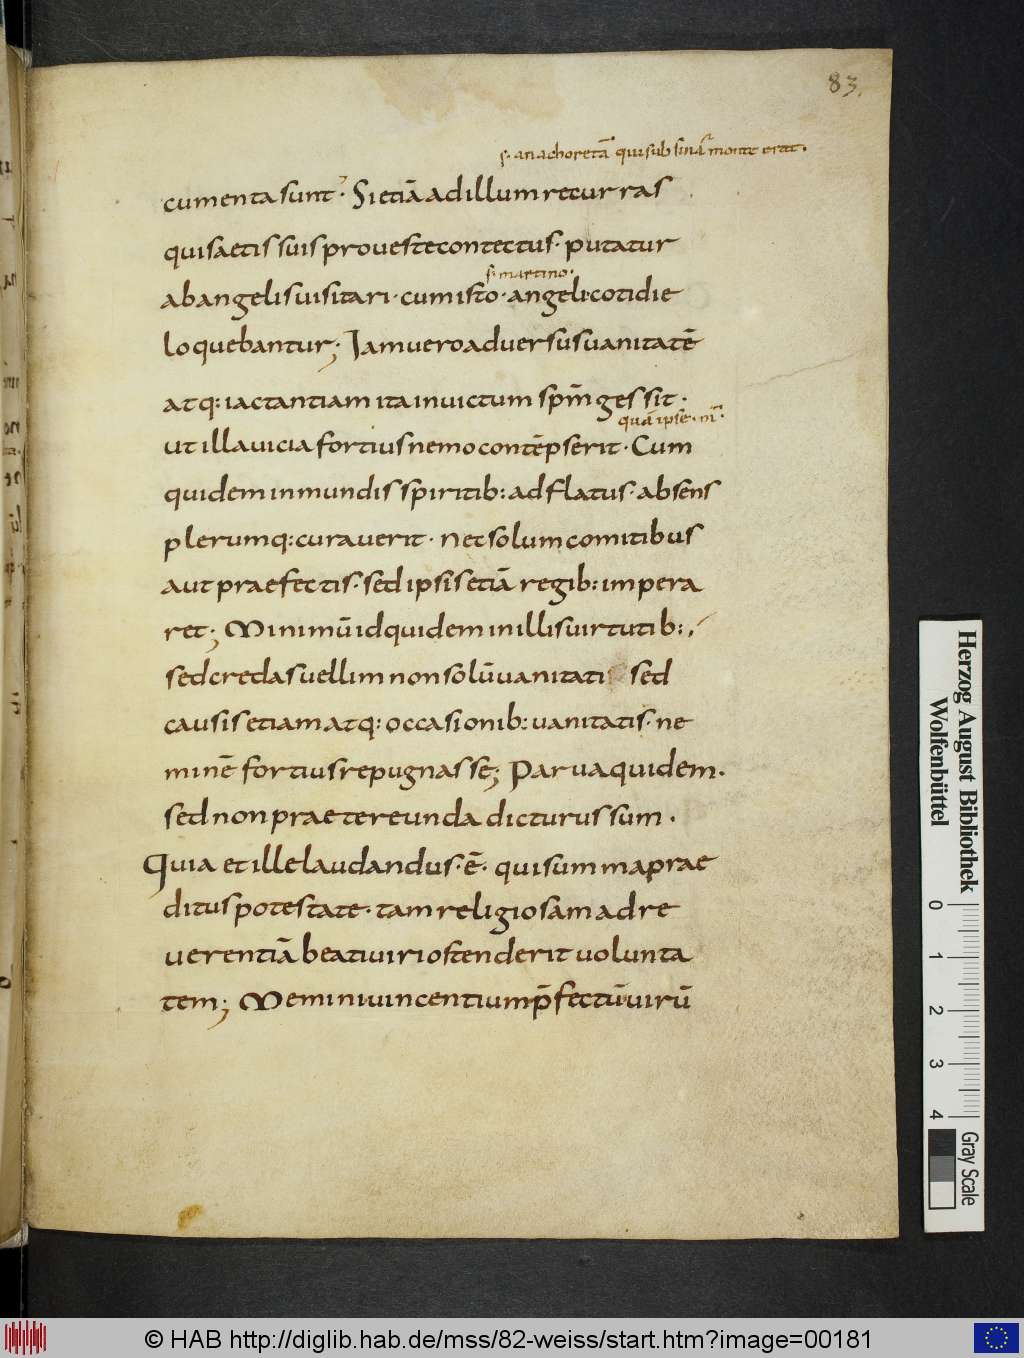 83
s· anachoretā qui sub sina monte erat·
cumenta sunt· Si etiā ad illum recurras
qui saetis suis pro ueste contectus· putatur
s· martino·
ab angelis uisitari· cum isto· angeli cotidie
loquebantur; Iam uero aduersus uanitatē
atq: iactantiam ita inuictum spm̄ gessit·
quā ipse·
ut illa uicia fortius nemo contēpserit· Cum
quidem inmundis spiritib: adflatus· absens
plerumq: curauerit· nec solum comitibus
aut praefectis· sed ipsis etiā regib: impera
ret; Minimū id quidem in illis uirtutib:
sed credas uellim non solū uanitati sed
causis etiam atq: occasionib: uanitatis· ne
minē fortius repugnasse; Parua quidem·
sed non praetereunda dicturus sum·
Quia et ille laudandus· ē· qui summa prae
ditus potestate· tam religiosam ad re
uerentiā beati uiri ostenderit uolunta
tem; Memini uincentium p̄fectū uirū
Herzog August Bibliothek
Wolfenbüttel
0 1 2 3 4
Gray Scale
© HAB http://diglib.hab.de/mss/82-weiss/start.htm?image=00181